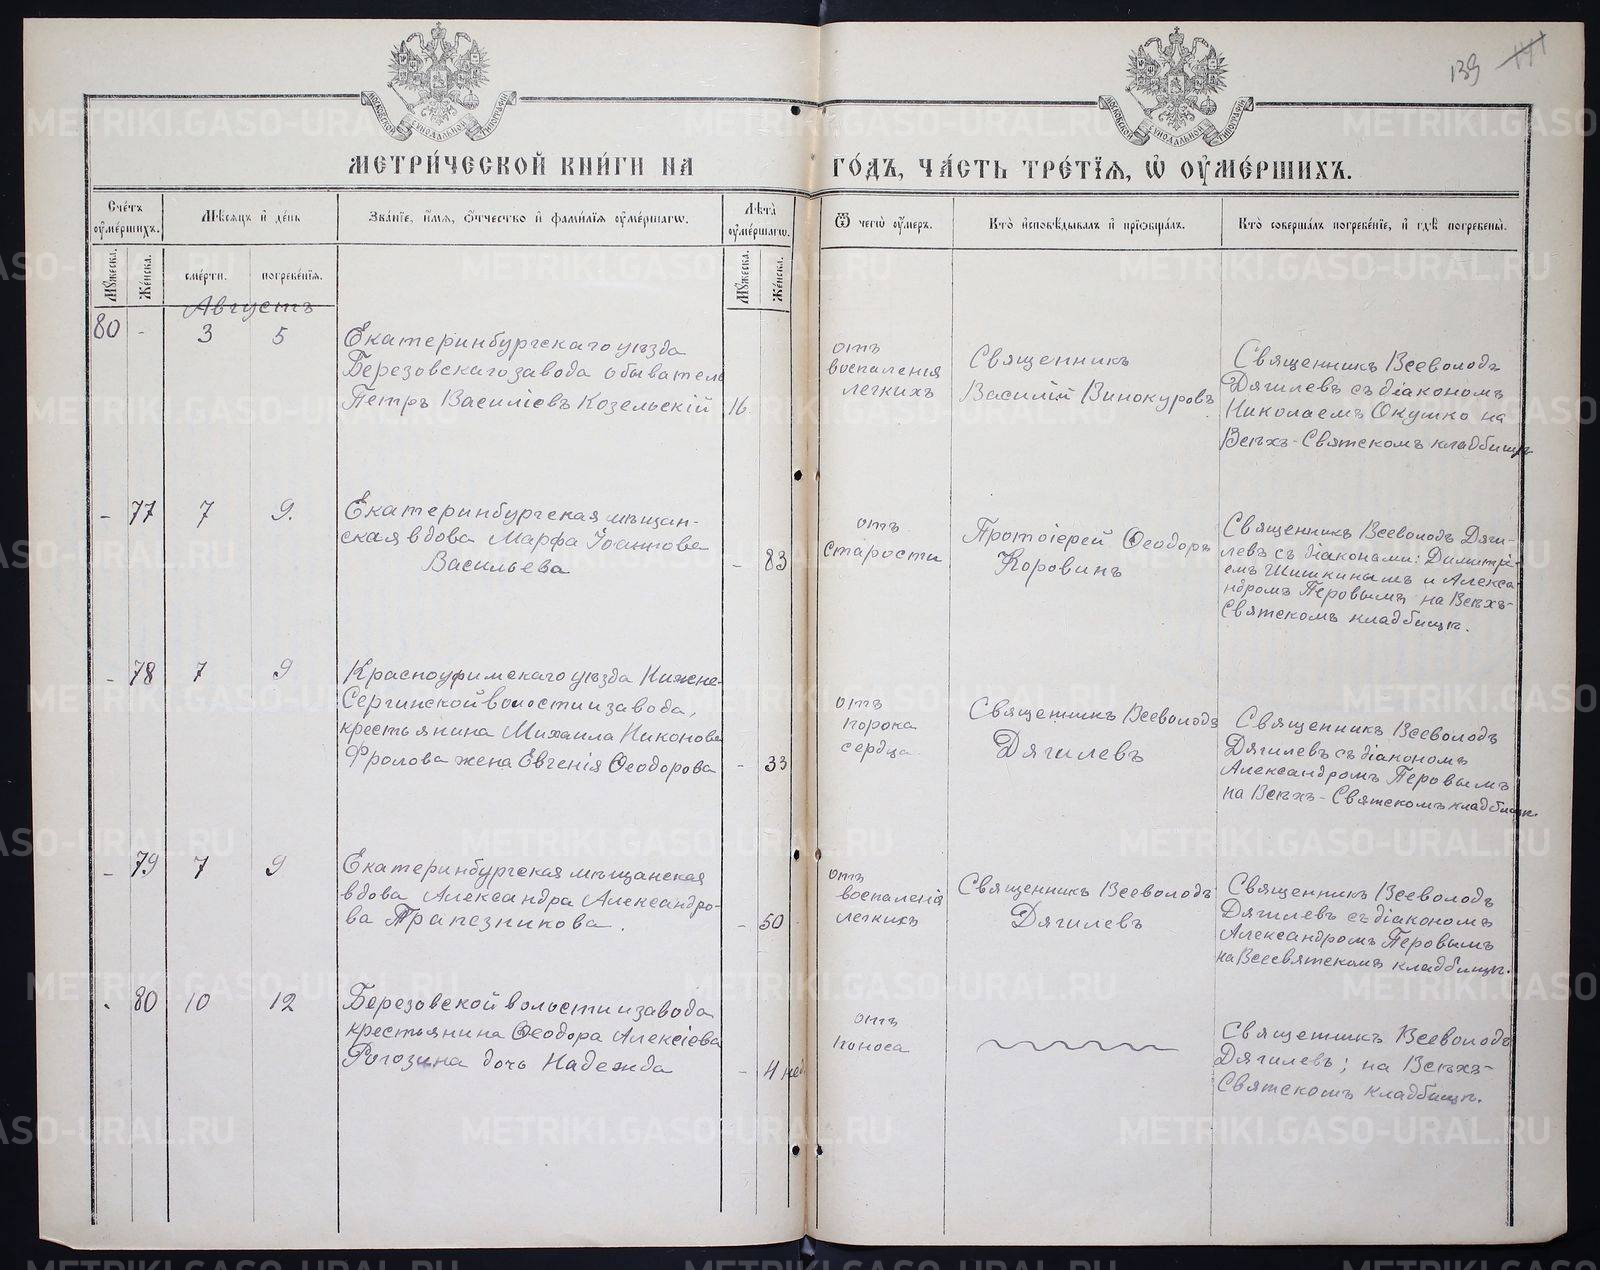 139 141
МОСКОВСКОЙ СѴНОДАЛЬНОЙ ТИПОГРАФІИ
МОСКОВСКОЙ СѴНОДАЛЬНОЙ ТИПОГРАФІИ
МЕТРИ́ЧЕСКОЙ КНИ́ГИ НА ГО́ДЪ, ЧА́СТЬ ТРЕ́ТІѦ, Ѡ҆ ОУ҆МЕ́РШИХЪ.
Сче́тъ оу҆ме́ршихъ.
Мѣ́сѧцъ и҆ де́нь
Зва́нїе, и҆́мѧ, ѻ҆́тчество и҆ фами́лїѧ оу҆ме́ршагѡ.
Лѣ́та оу҆ме́ршагѡ.
Ѿ чегѡ̀ оу҆́меръ.
Кто̀ и҆сповѣ́дывалъ и҆ прїѻбща́лъ.
Кто̀ соверша́лъ погребе́нїе, и҆ гдѣ̀ погребены̀.
Мꙋ́жеска. Же́нска. сме́рти. погребе́нїѧ. Мꙋ́жеска. Же́нска.
Августъ
80 - 3 5
Екатеринбургскаго уѣзда
Березовскаго завода обыватель
Петръ Василіевъ Козельскій 16
отъ
воспаленія
легкихъ
Священникъ
Василій Винокуровъ
Священникъ Всеволодъ
Дягилевъ съ діакономъ
Николаемъ Окушко на
Всѣхъ-Святскомъ кладбищѣ
- 77 7 9.
Екатеринбургская мѣщан-
ская вдова Марфа Іоаннова
Васильева - 83
отъ
старости
Протоіерей Ѳеодоръ
Коровинъ
Священникъ Всеволодъ Дяги-
левъ съ діаконами: Димитрі-
емъ Шишкинымъ и Алекса-
ндромъ Перовымъ на Всѣхъ-
Святскомъ кладбищѣ.
- 78 7 9
Красноуфимскаго уѣзда Нижне-
Сергинской волости и завода,
крестьянина Михаила Никонова
Фролова жена Евгенія Ѳеодорова - 33
отъ
порока
сердца
Священникъ Всеволодъ
Дягилевъ
Священникъ Всеволодъ
Дягилевъ съ діакономъ
Александромъ Перовымъ
на Всѣхъ-Святскомъ кладбищѣ.
- 79 7 9
Екатеринбургская мѣщанская
вдова Александра Александро-
ва Трапезникова. - 50
отъ
воспаленія
легкихъ
Священникъ Всеволодъ
Дягилевъ
Священникъ Всеволодъ
Дягилевъ съ діакономъ
Александромъ Перовымъ
на Всесвятскомъ кладбищѣ.
- 80 10 12
Березовской волости и завода
крестьянина Ѳеодора Алексіева
Рогозина дочь Надежда - 4 нед
отъ
поноса
Священникъ Всеволодъ
Дягилевъ; на Всѣхъ-
Святскомъ кладбищѣ.
METRIKI.GASO-URAL.RU